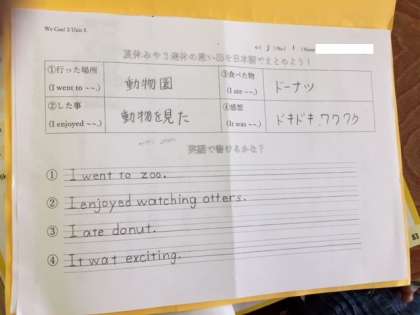 We Can! 2 Unit 5
夏休みやう連休の思い出を日本語でまとめよう！
①行った場所
(I went to ~~.)
動物園
③食べた物
(I ate ~~.)
ドーナツ
②した事
(I enjoyed ~~.)
動物を見た
④感想
(It was ~~.)
ドキドキ、ワクワク
英語で書けるかな？
① I went to zoo.
② I enjoyed watching otters.
③ I ate donut.
④ It wat exciting.